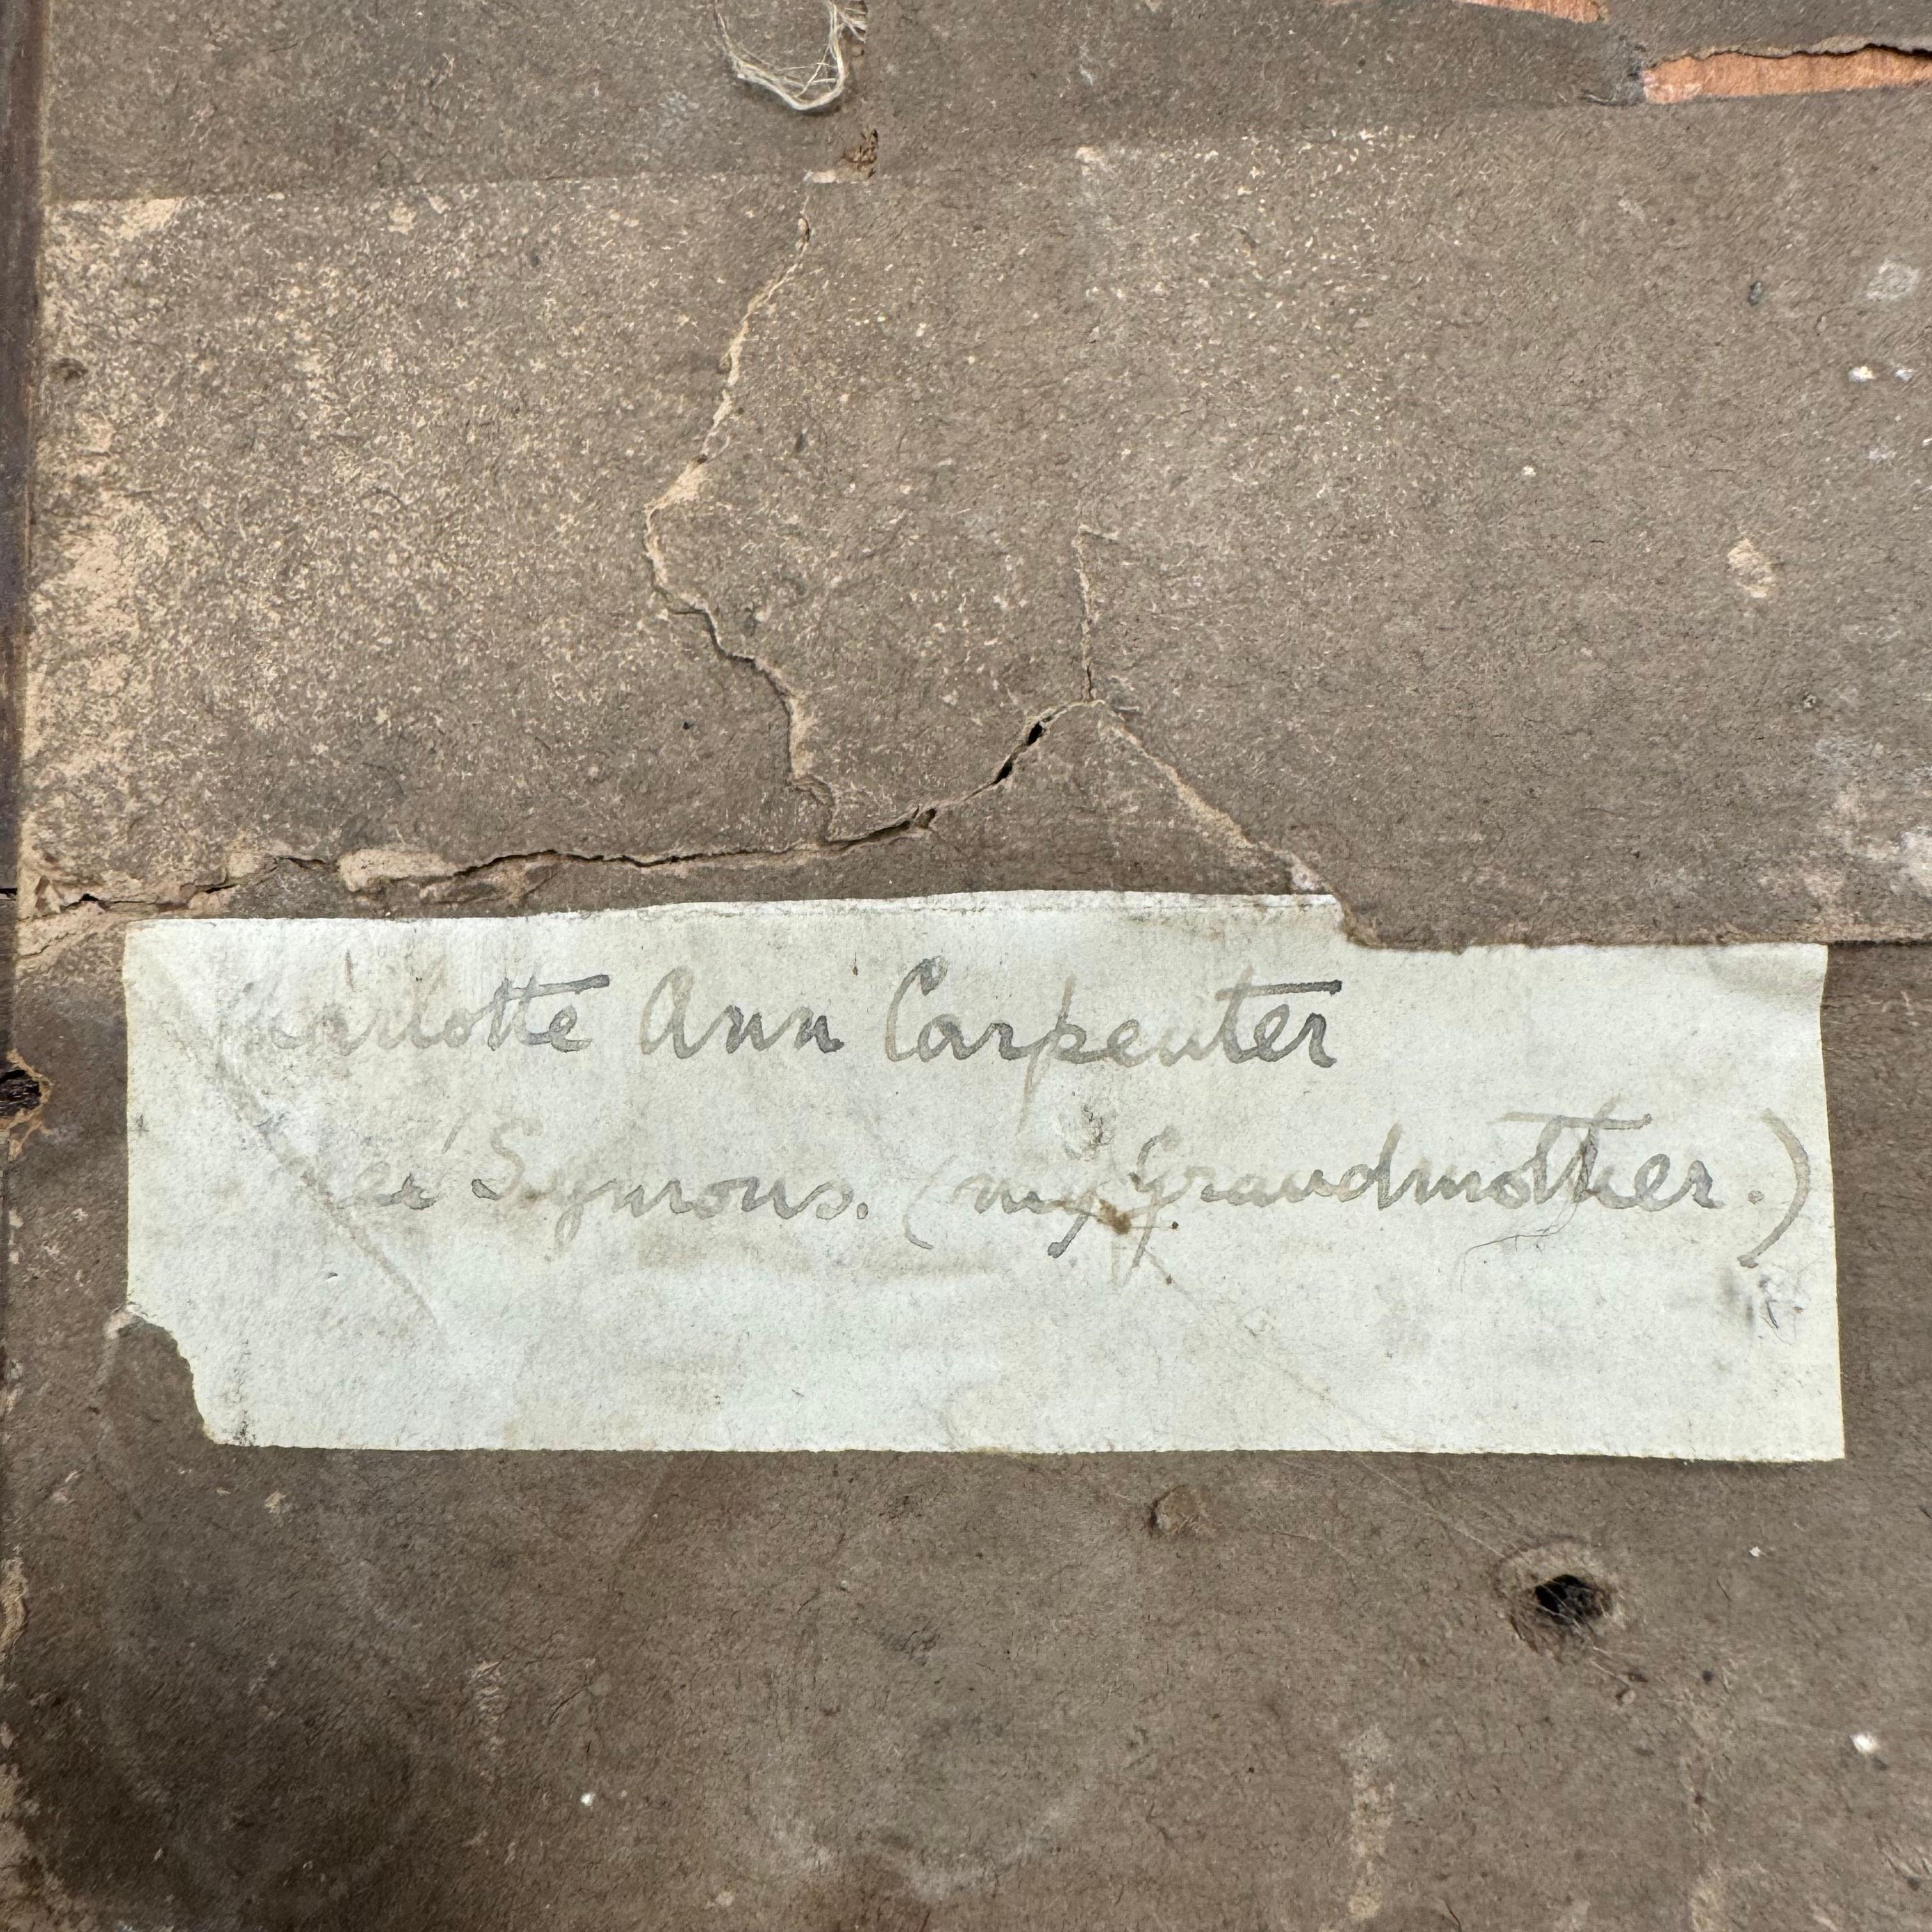 Charlotte Ann Carpenter
neé Symons. (my Grandmother.)